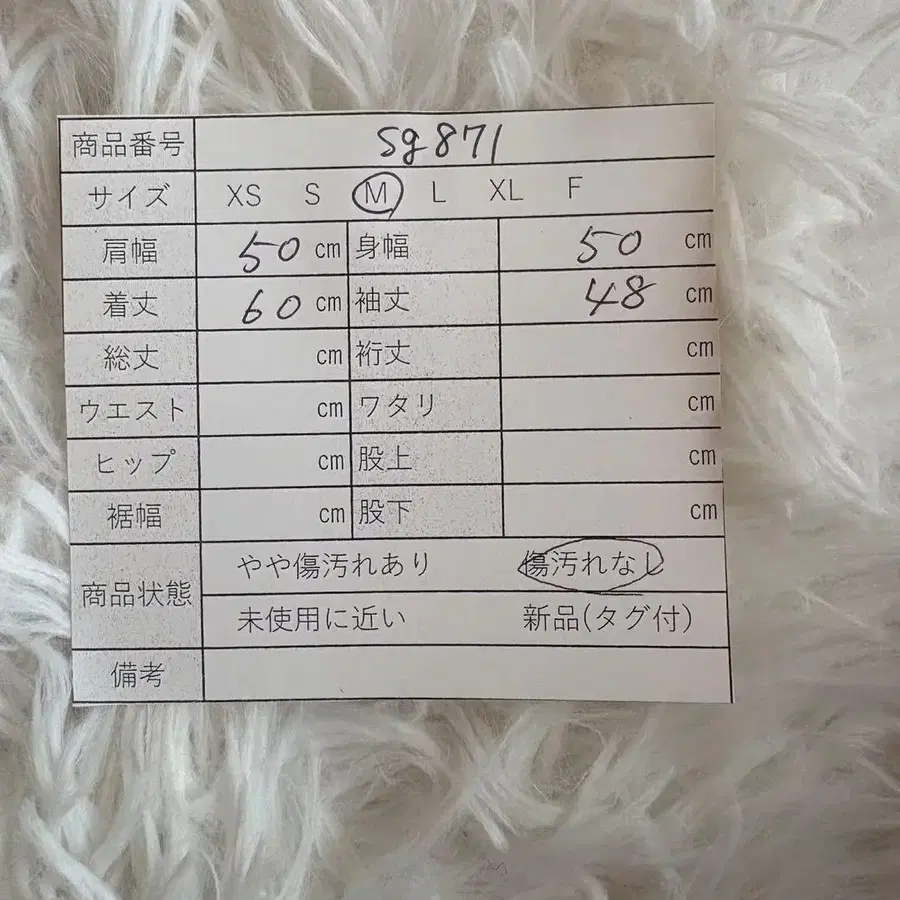 商品番号 sg871
サイズ XS S M L XL F
肩幅 50 cm 身幅 50 cm
着丈 60 cm 袖丈 48 cm
総丈 cm 裄丈 cm
ウエスト cm ワタリ cm
ヒップ cm 股上 cm
裾幅 cm 股下 cm
商品状態 やや傷汚れあり 傷汚れなし
未使用に近い 新品(タグ付)
備考